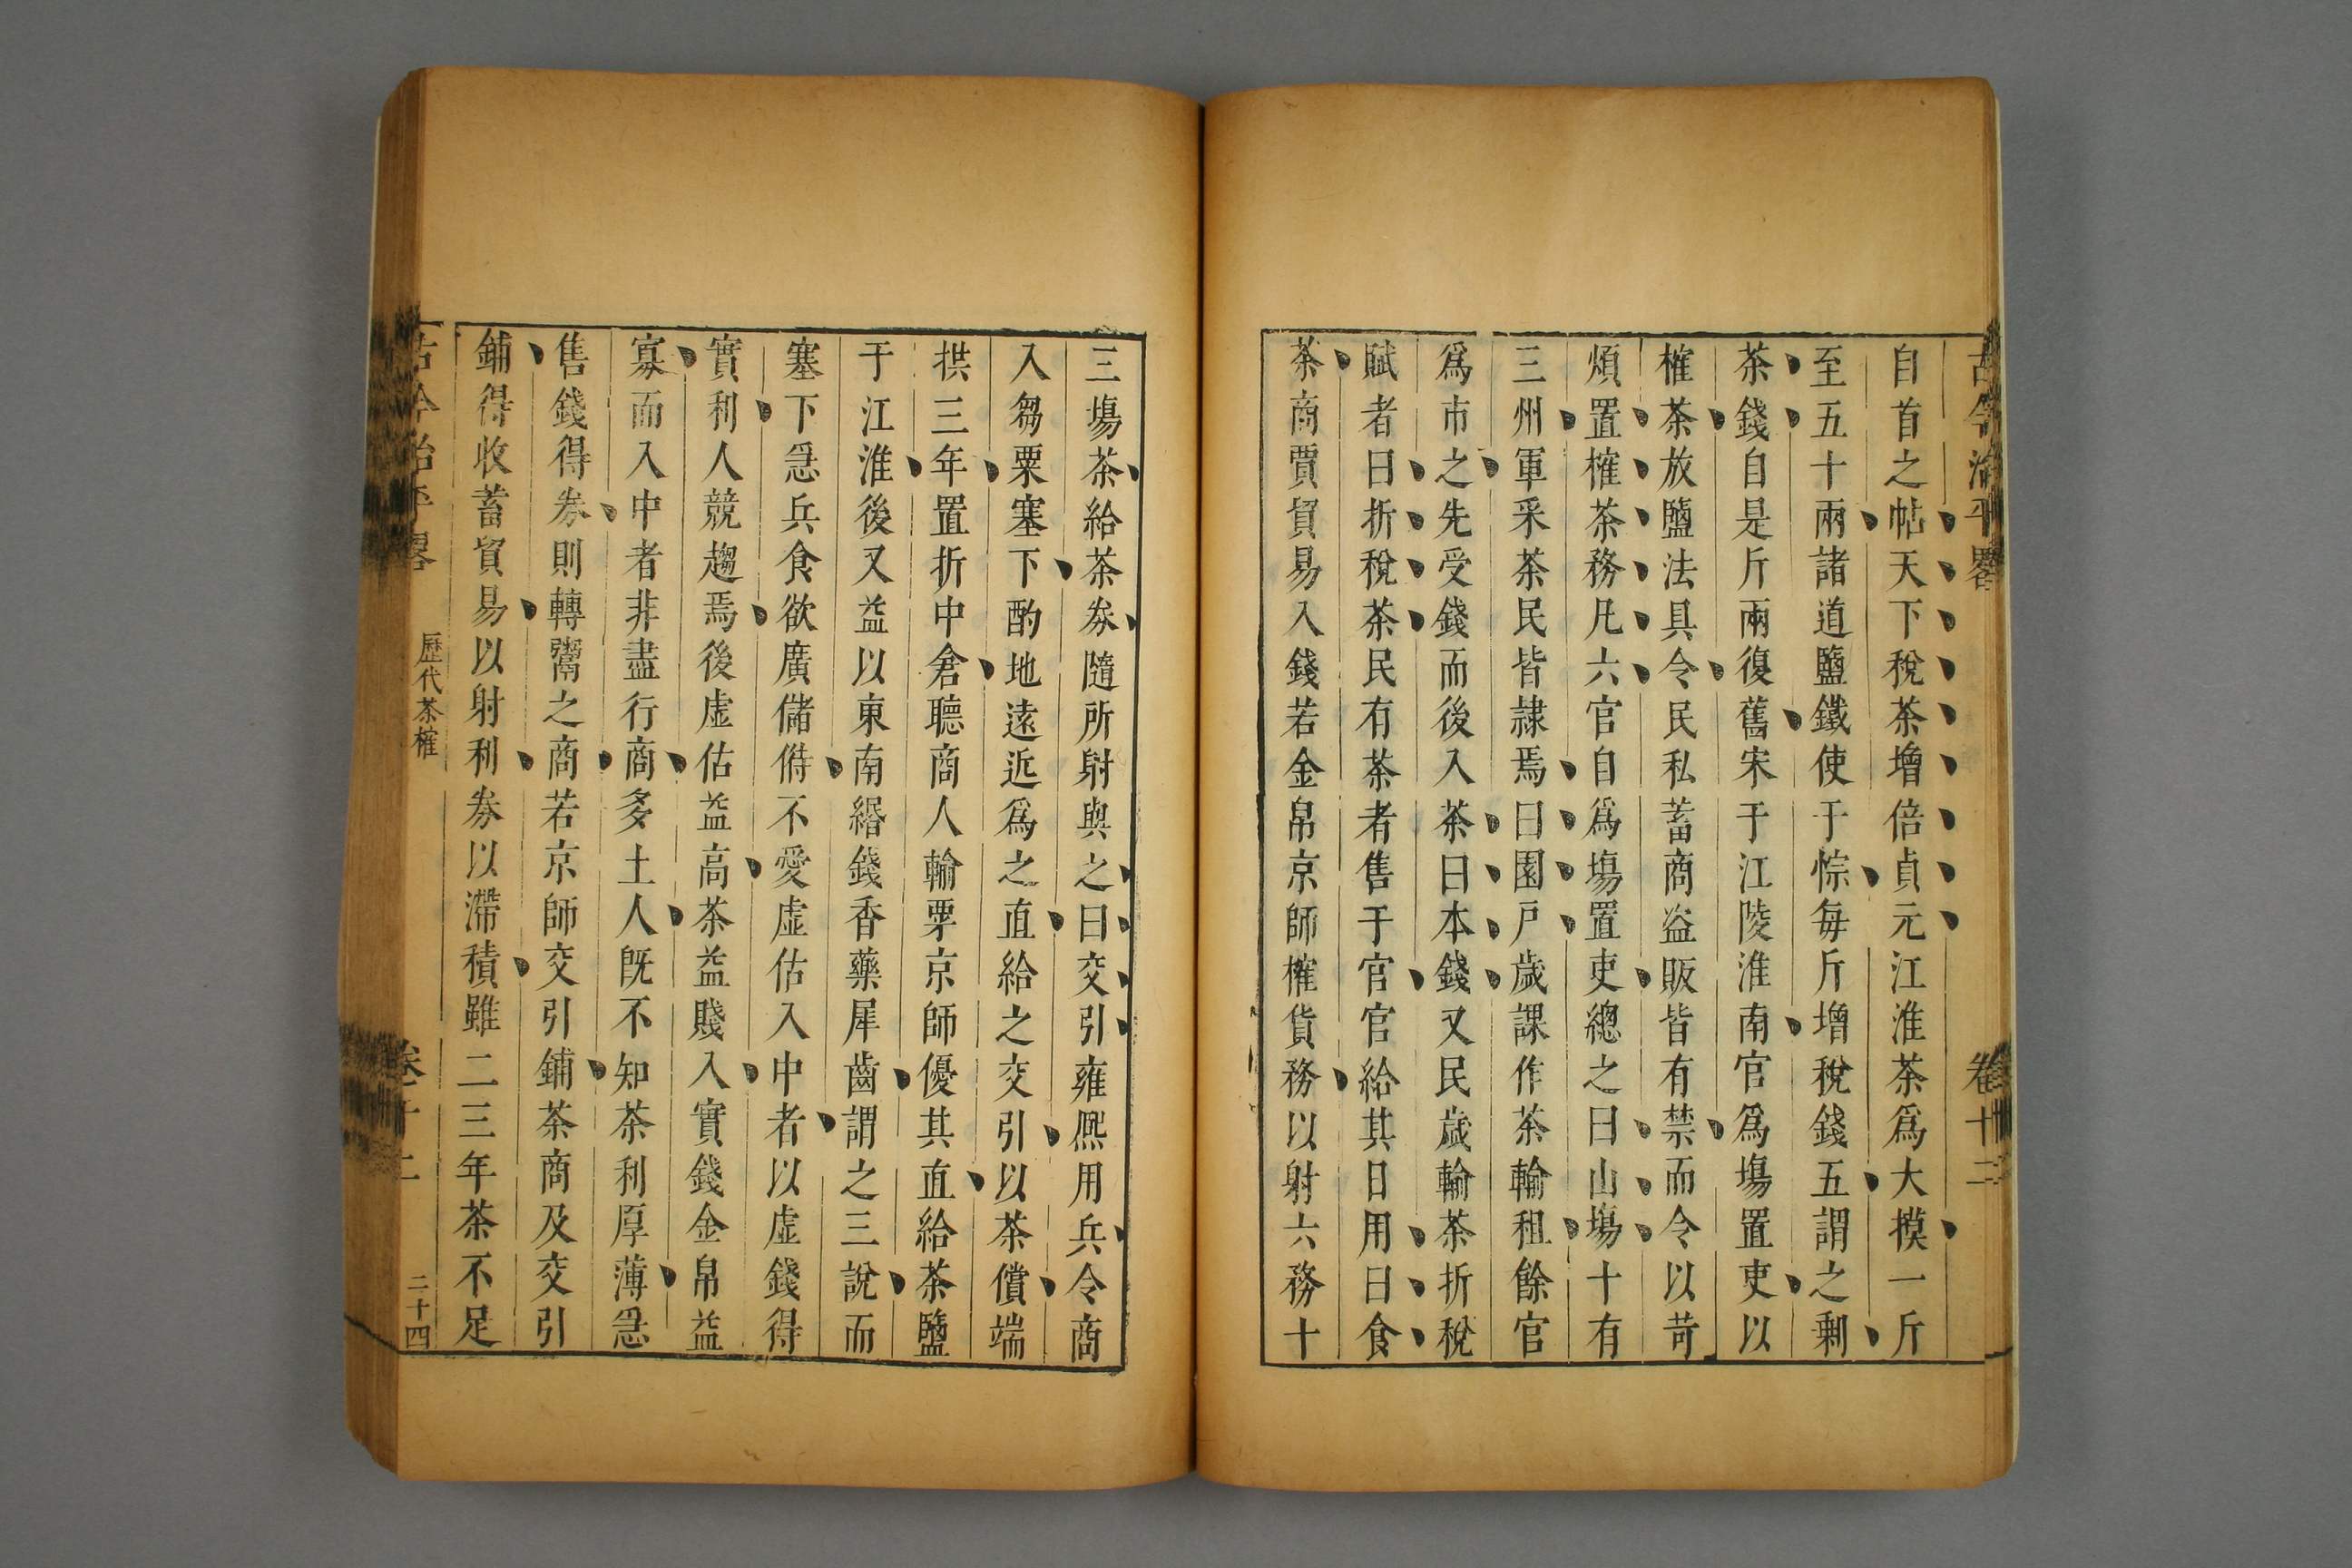 古今治平畧 卷十二
自首之帖天下稅茶增倍貞元江淮茶爲大摸一斤
至五十兩諸道鹽鐵使于悰每斤增稅錢五謂之剩
茶錢自是斤兩復舊宋于江陵淮南官爲塲置吏以
榷茶放鹽法具令民私蓄商盜販皆有禁而令以苛
煩置榷茶務凡六官自爲塲置吏總之曰山塲十有
三州軍采茶民皆隷焉曰園戸歲課作茶輸租餘官
爲市之先受錢而後入茶曰本錢又民歲輸茶折稅
賦者曰折稅茶民有茶者售于官官給其日用曰食
茶商賈貿易入錢若金帛京師榷貨務以射六務十
三塲茶給茶劵隨所射與之曰交引雍熈用兵令商
入芻粟塞下酌地遠近爲之直給之交引以茶償端
拱三年置折中倉聽商人輸粟京師優其直給茶鹽
于江淮後又益以東南緡錢香藥犀齒謂之三說而
塞下急兵食欲廣儲偫不愛虛估入中者以虛錢得
實利人競趨焉後虛估益高茶益賤入實錢金帛益
寡而入中者非盡行商多土人旣不知茶利厚薄急
售錢得劵則轉鬻之商若京師交引鋪茶商及交引
鋪得收蓄貿易以射利劵以滯積雖二三年茶不足
古今治平畧 歷代茶榷 卷十二 二十四